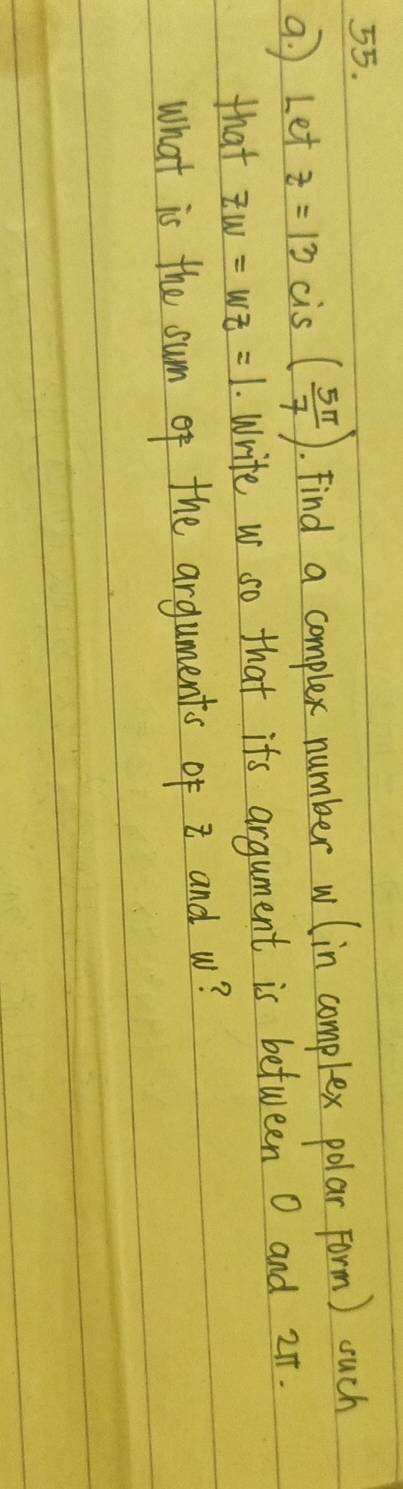 55.
a.) Let z = 13 cis (5π/7). Find a complex number w (in complex polar form) such
that zw = wz = 1. Write w so that its argument is between 0 and 2π.
What is the sum of the arguments of z and w?